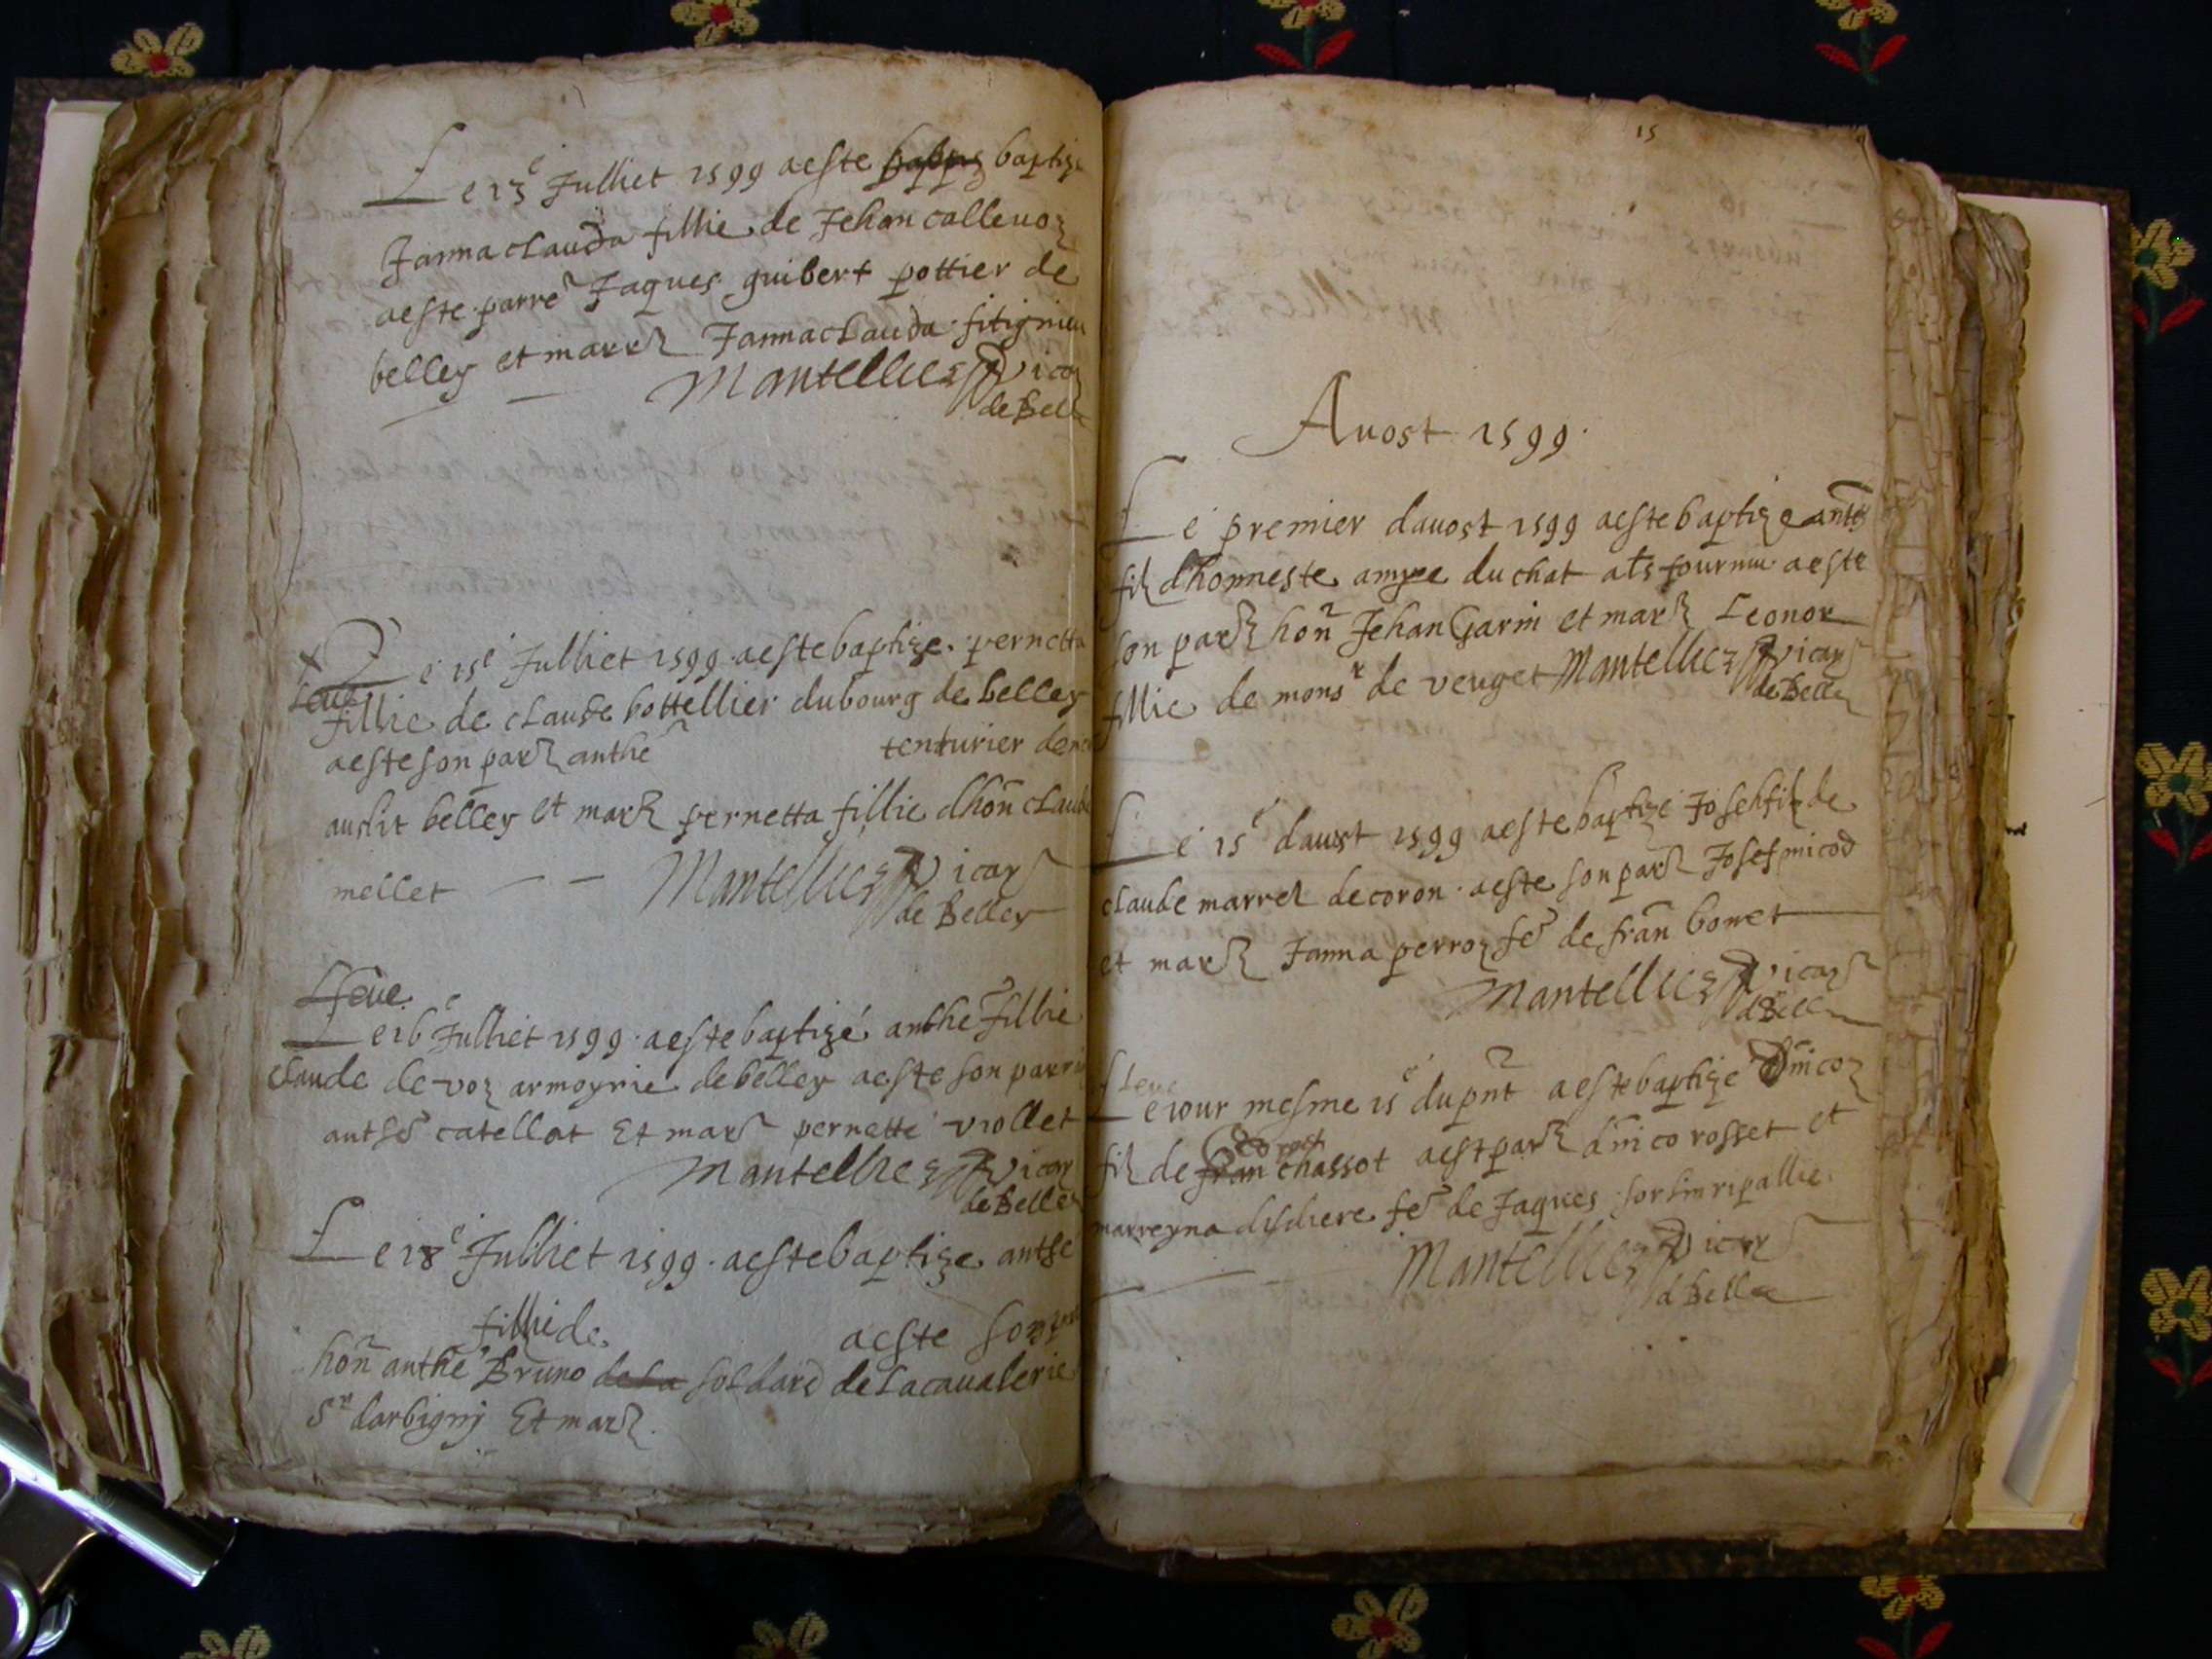 Le 13e Julliet 1599 aeste baptize
Janna clauda fillie de Jehan callenoz
aeste parre Jaques guibert pottier de
belley et marr Janna clauda fitignieu
Mantellier vicar
de Bell
Le 15e Julliet 1599 aeste baptize pernetta
Leve
fillie de claude bottellier du bourg de belley
aeste son parr anthe tenturier dem
audit belley et marr pernetta fillie dhon claude
mellet Mantellier vicar
de Belley
Leve
Le 16e Julliet 1599 aeste baptizé anthe fillie
claude de voz armoyrie de belley aeste son parri
anthe catellat Et marr pernette viollet
Mantellier vicar
de Belley
Le 18e Julliet 1599 aeste baptize anthe
fillie de aeste son
hon anthe Bruno de la soldard de la cavalerie
Sr darbigny Et marr
15
Auost 1599
Le premier dauost 1599 aeste baptize anthe
filz dhonneste amyee du chat als fournu aeste
son parr hon Jehan Garin et marr Leonor
fillie de monsr de venget Mantellier vicar
de Belle
Le 15e daust 1599 aeste baptize Joseh filz de
claude marrel de coron aeste son parr Josef micod
et marr Janna perroz fe de fran bonet
Mantellier vicar
d Belle
Leve
Le iour mesme 15e du pnt aeste baptize dnicoz
filz de fran chassot aest parr dnico rosset et
marreyna disdiere fe de Jaques sorlin ripallie
Mantellier vicar
d Belle